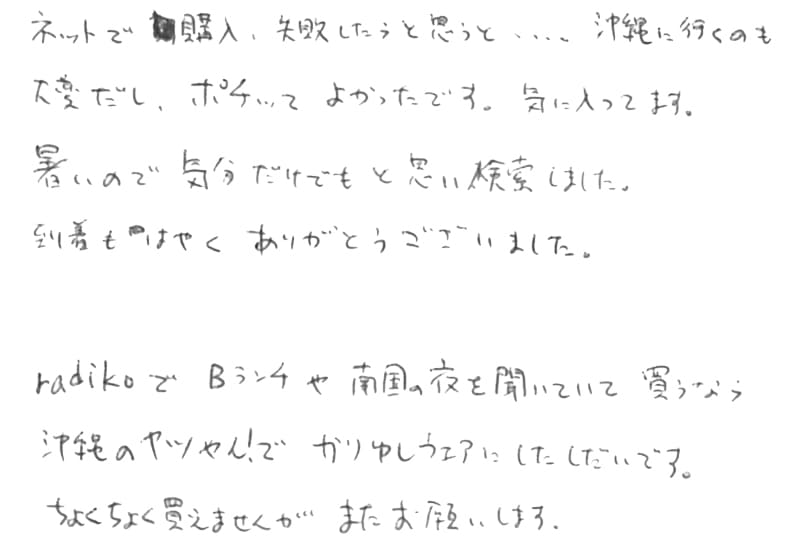 ネットで購入、失敗したらと思うと、、、、沖縄に行くのも
大変だし、ポチッてよかったです。気に入ってます。
暑いので気分だけでもと思い検索しました。
到着もはやくありがとうございました。
radikoでBランチや南国の夜を聞いていて買うなら
沖縄のヤツやん!でかりゆしウェアにしたしだいです。
ちょくちょく買えませんがまたお願いします.